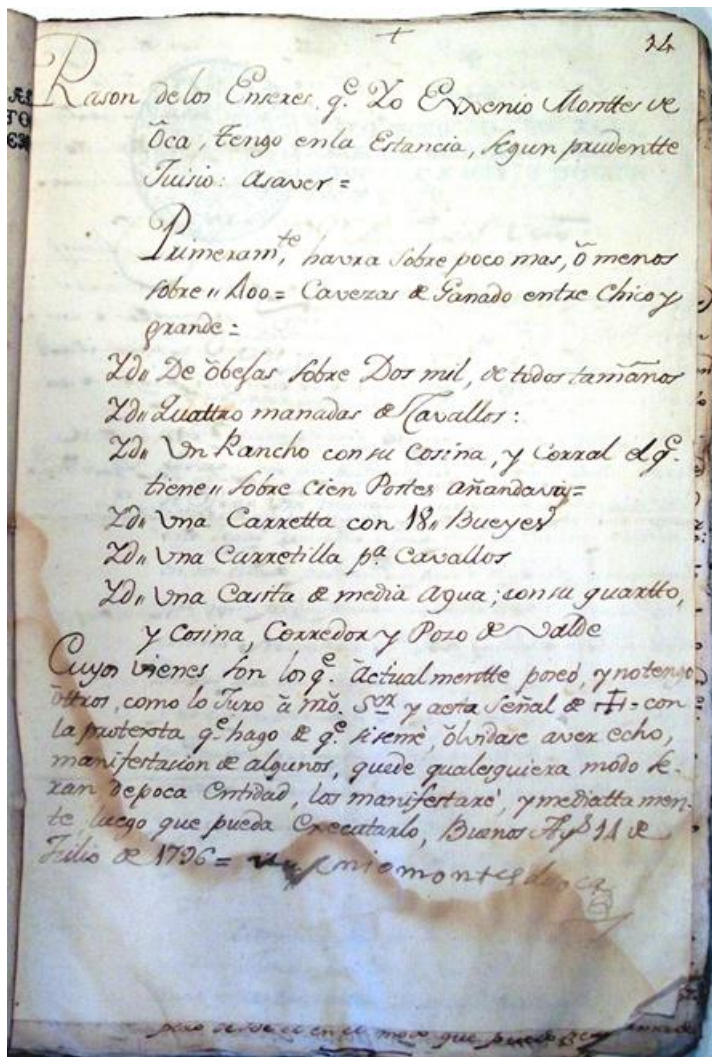 +
14
Rason de los Enseres, qᵉ. Yo Eugenio Monttes de
Òca, tengo en la Estancia, segun prudentte
Juisio: Asaver =
Primeramᵗᵉ, havra sobre poco mas, ò menos
sobre " 400 = Cavezas de Ganado entre Chico y
grande =
Yd" De òbejas sobre Dos mil, de todos tamaños
Yd" Quattro manadas de Cavallos:
Yd" Un Rancho con su Cosina, y Corral el qᵉ.
tiene " sobre cien Postes añandavay =
Yd" Una Carretta con 18" Bueyes
Yd" Una Carretilla pᵃ. Cavallos
Yd" Una Casita de media Agua; con su quartto,
y Cosina, Corredor y Pozo de Valde
Cuyos vienes son los qᵉ. àctualmentte poseo, y no tengo
òttros, como lo Juro à nrõ. Sᵒʳ y aesta Señal de ✝ = con
la protexta qᵉ hago de qᵉ. siseme, òlvidase aver echo,
manifestacion de algunos, quede qualesquiera modo se-
ran depoca Entidad, los manifestaré, ymediatta men-
te, luego que pueda Execatarlo, Buenos Ayˢ 14 de
Julio de 1796 = eugenio montes de oca
en el modo que puedo